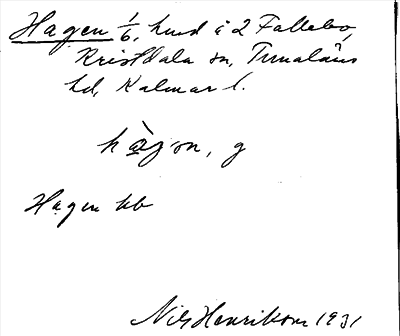 Hagen 1/6, hmd å 2 Fallebo,
Kristdala sn, Tunaläns
hd, Kalmar l.
hàgɔn, g
Hagen kb
Nils Henrikson 1931